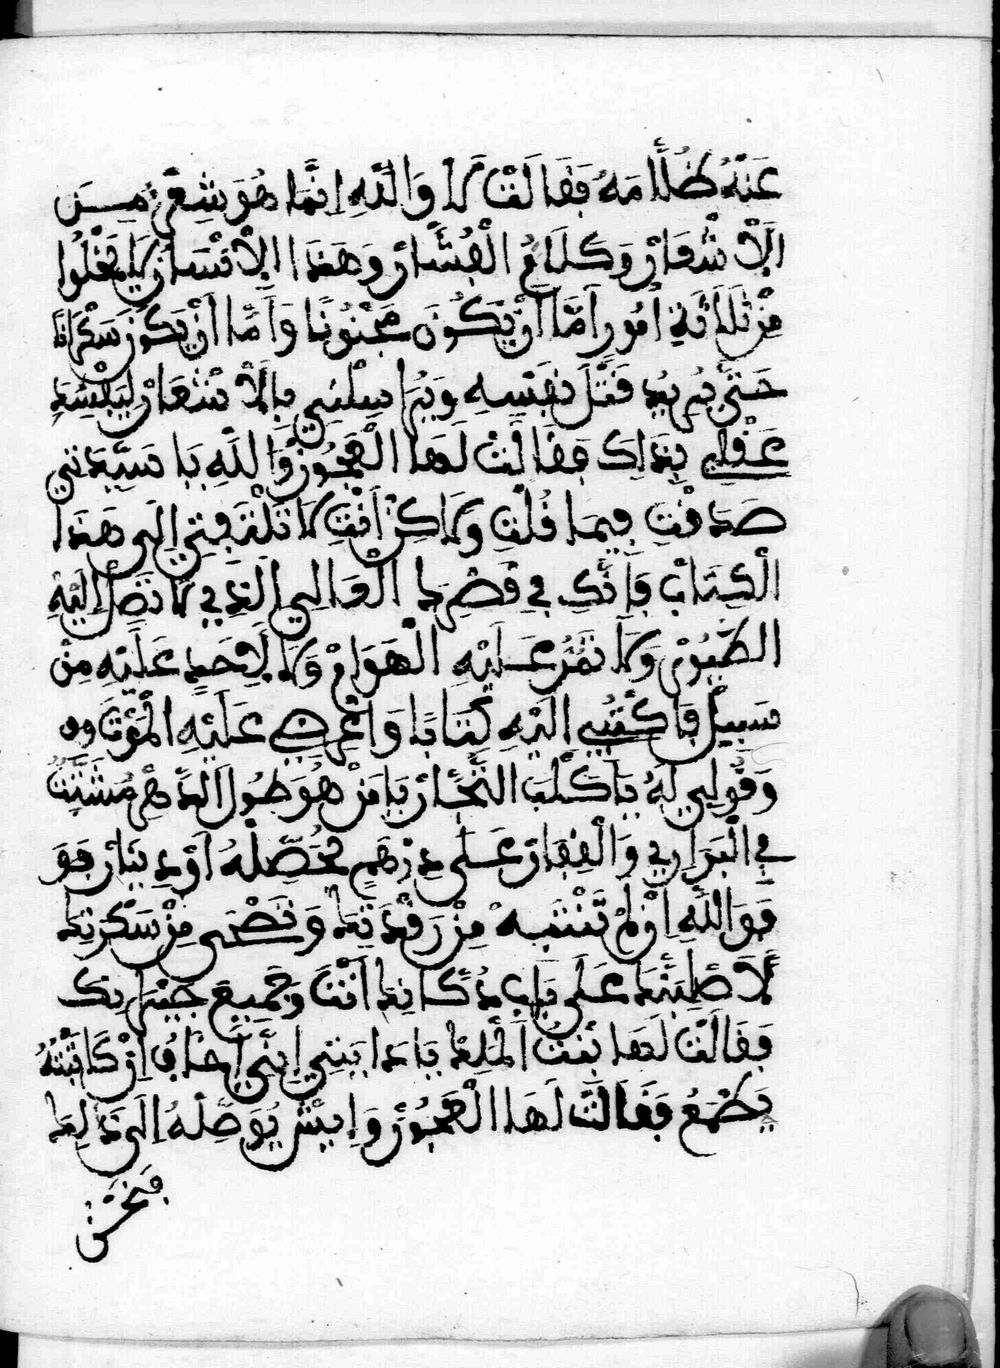 عَنْهُ ظُلَّامَهُ فَقَالَتْ لَا وَاللَّهِ إِنَّمَا هُوَ شِعْرٌ مِّنَ
الَاشْعَارْ وَكَلَامُ الْفُشَّارْ وَهَذَا الِانْسَانْ لَا يَخْلُوا
مِنْ ثَلَاثَةِ أُمُورٍ أَمَّا أَنْ يَكُونَ مَجْنُونًا وَأَمَّا أَنْ يَكُونَ سَكْرَانًا
حَتَّى يُرِيدُ قَتْلَ نَفْسِهِ وَيُرَاسِلْنِي بِالَاشْعَارْ لِيُفْسِدَ
عَقْلِي بِذَالِكَ فَقَالَتْ لَهَا الْعَجُوزْ وَاللَّهِ يَا سَيِّدَتِي
صَدَقْتِ فِيمَا قُلْتِ وَلَاكِنْ أَنْتِ لَا تَلْتَفِتِي إِلَى هَذَا
الْكِتَابْ فَأَنْتِ فِي قَصْرِكِ الْعَالِي الَّذِي لَا تَصِلُ إِلَيْهِ
الطُّيُورْ وَلَا تَمُرُّ عَلَيْهِ الْهَوَامْ وَلَا لِأَحَدٍ عَلَيْهِ مِنْ
سَبِيلْ فَاكْتُبِي إِلَيْهِ كِتَابًا وَاعْرِضِي عَلَيْهِ الْمَوْتَ
وَقُولِي لَهُ يَا كَلْبَ التُّجَّارْ يَا مَنْ هُوَ طُولَ الدَّهْرِ مُشَتَّتْ
فِي الْبَرَارِي وَالْقِفَارْ عَلَى دِرْهَمٍ تُحَصِّلُهُ أَوْ دِينَارْ فَوَ
فَوَاللَّهِ إِنْ لَمْ تَنْتَبِهْ مِنْ رَقْدَتِكَ وَتَصْحَى مِنْ سَكْرَتِكَ
لَأَصْلِبَنَّكَ عَلَى بَابِ دُكَّانِكَ أَنْتَ وَجَمِيعَ جِيرَانِكَ
فَقَالَتْ لَهَا بِنْتُ الْمَلِكْ يَا دَايَتِي إِنِّي أَخَافُ إِنْ كَاتَبْتُهُ
يَطْمَعُ فَقَالَتْ لَهَا الْعَجُوزْ وَإِيشْ يُوَصِّلُهُ إِلَى ذَلِكَ
فَنَحْنُ